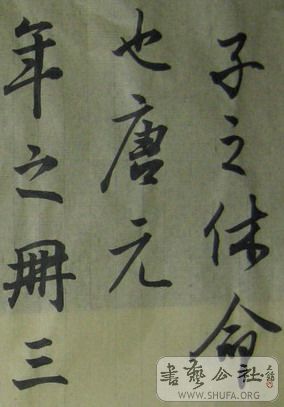 子之休命
也唐元
年之冊三
書藝公社
WWW.SHUFA.ORG